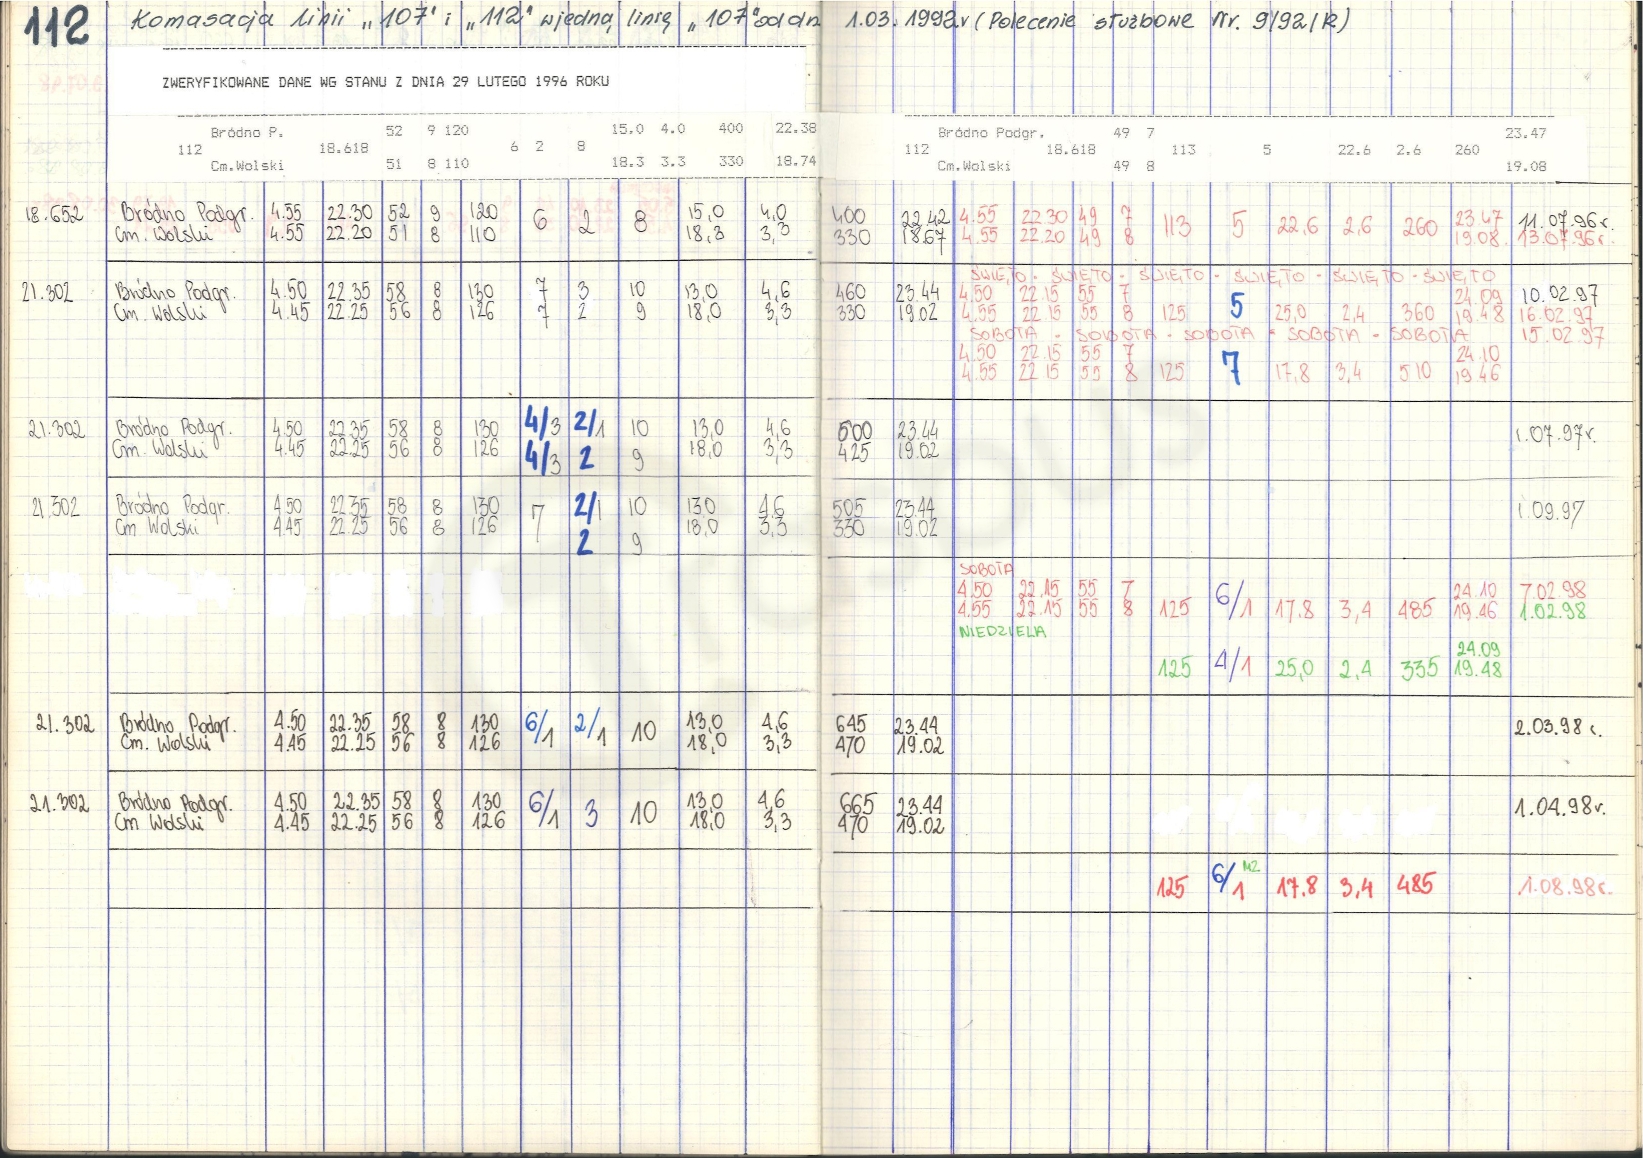 112 Komasacja linii „107" i „112" w jedną linię „107" od dn 1.03.1992r (Polecenie służbowe Nr. 9/92/R)
ZWERYFIKOWANE DANE WG STANU Z DNIA 29 LUTEGO 1996 ROKU
Bródno P. 52 9 120 15.0 4.0 400 22.38 Bródno Podgr. 49 7 23.47
112 18.618 6 2 8 112 18.618 113 5 22.6 2.6 260
Cm.Wolski 51 8 110 18.3 3.3 330 18.74 Cm.Wolski 49 8 19.08
18.652 Bródno Podgr. 4.55 22.30 52 9 120 6 2 8 15,0 4,0 400 22.42 4.55 22.30 49 7 113 5 22,6 2,6 260 23.47 11.07.96r.
Cm. Wolski 4.55 22.20 51 8 110 18,3 3,3 330 18.67 4.55 22.20 49 8 19.08. 13.07.96r.
ŚWIĘTO - ŚWIĘTO - ŚWIĘTO - ŚWIĘTO - ŚWIĘTO - ŚWIĘTO
21.302 Bródno Podgr. 4.50 22.35 58 8 130 7 3 10 13,0 4,6 460 23.44 4.50 22.15 55 7 24.09 10.02.97
Cm. Wolski 4.45 22.25 56 8 126 7 2 9 18,0 3,3 330 19.02 4.55 22.15 55 8 125 5 25,0 2,4 360 19.48 16.02.97
SOBOTA - SOBOTA - SOBOTA - SOBOTA - SOBOTA 15.02.97
4.50 22.15 55 7 24.10
4.55 22.15 55 8 125 7 17,8 3,4 510 19.46
21.302 Bródno Podgr. 4.50 22.35 58 8 130 4/3 2/1 10 13,0 4,6 500 23.44 1.07.97r.
Cm. Wolski 4.45 22.25 56 8 126 4/3 2 9 18,0 3,3 425 19.02
21.302 Bródno Podgr. 4.50 22.35 58 8 130 7 2/1 10 13.0 4.6 505 23.44 1.09.97
Cm Wolski 4.45 22.25 56 8 126 2 9 18,0 3,3 330 19.02
SOBOTA
4.50 22.15 55 7 24.10 7.02.98
4.55 22.15 55 8 125 6/1 17.8 3,4 485 19.46 1.02.98
NIEDZIELA
24.09
125 4/1 25,0 2,4 335 19.48
21.302 Bródno Podgr. 4.50 22.35 58 8 130 6/1 2/1 10 13,0 4,6 645 23.44 2.03.98 r.
Cm. Wolski 4.45 22.25 56 8 126 18,0 3,3 470 19.02
21.302 Bródno Podgr. 4.50 22.35 58 8 130 6/1 3 10 13,0 4,6 665 23.44 1.04.98r.
Cm Wolski 4.45 22.25 56 8 126 18,0 3,3 470 19.02
125 6/1 M2 17.8 3,4 485 1.08.98r.